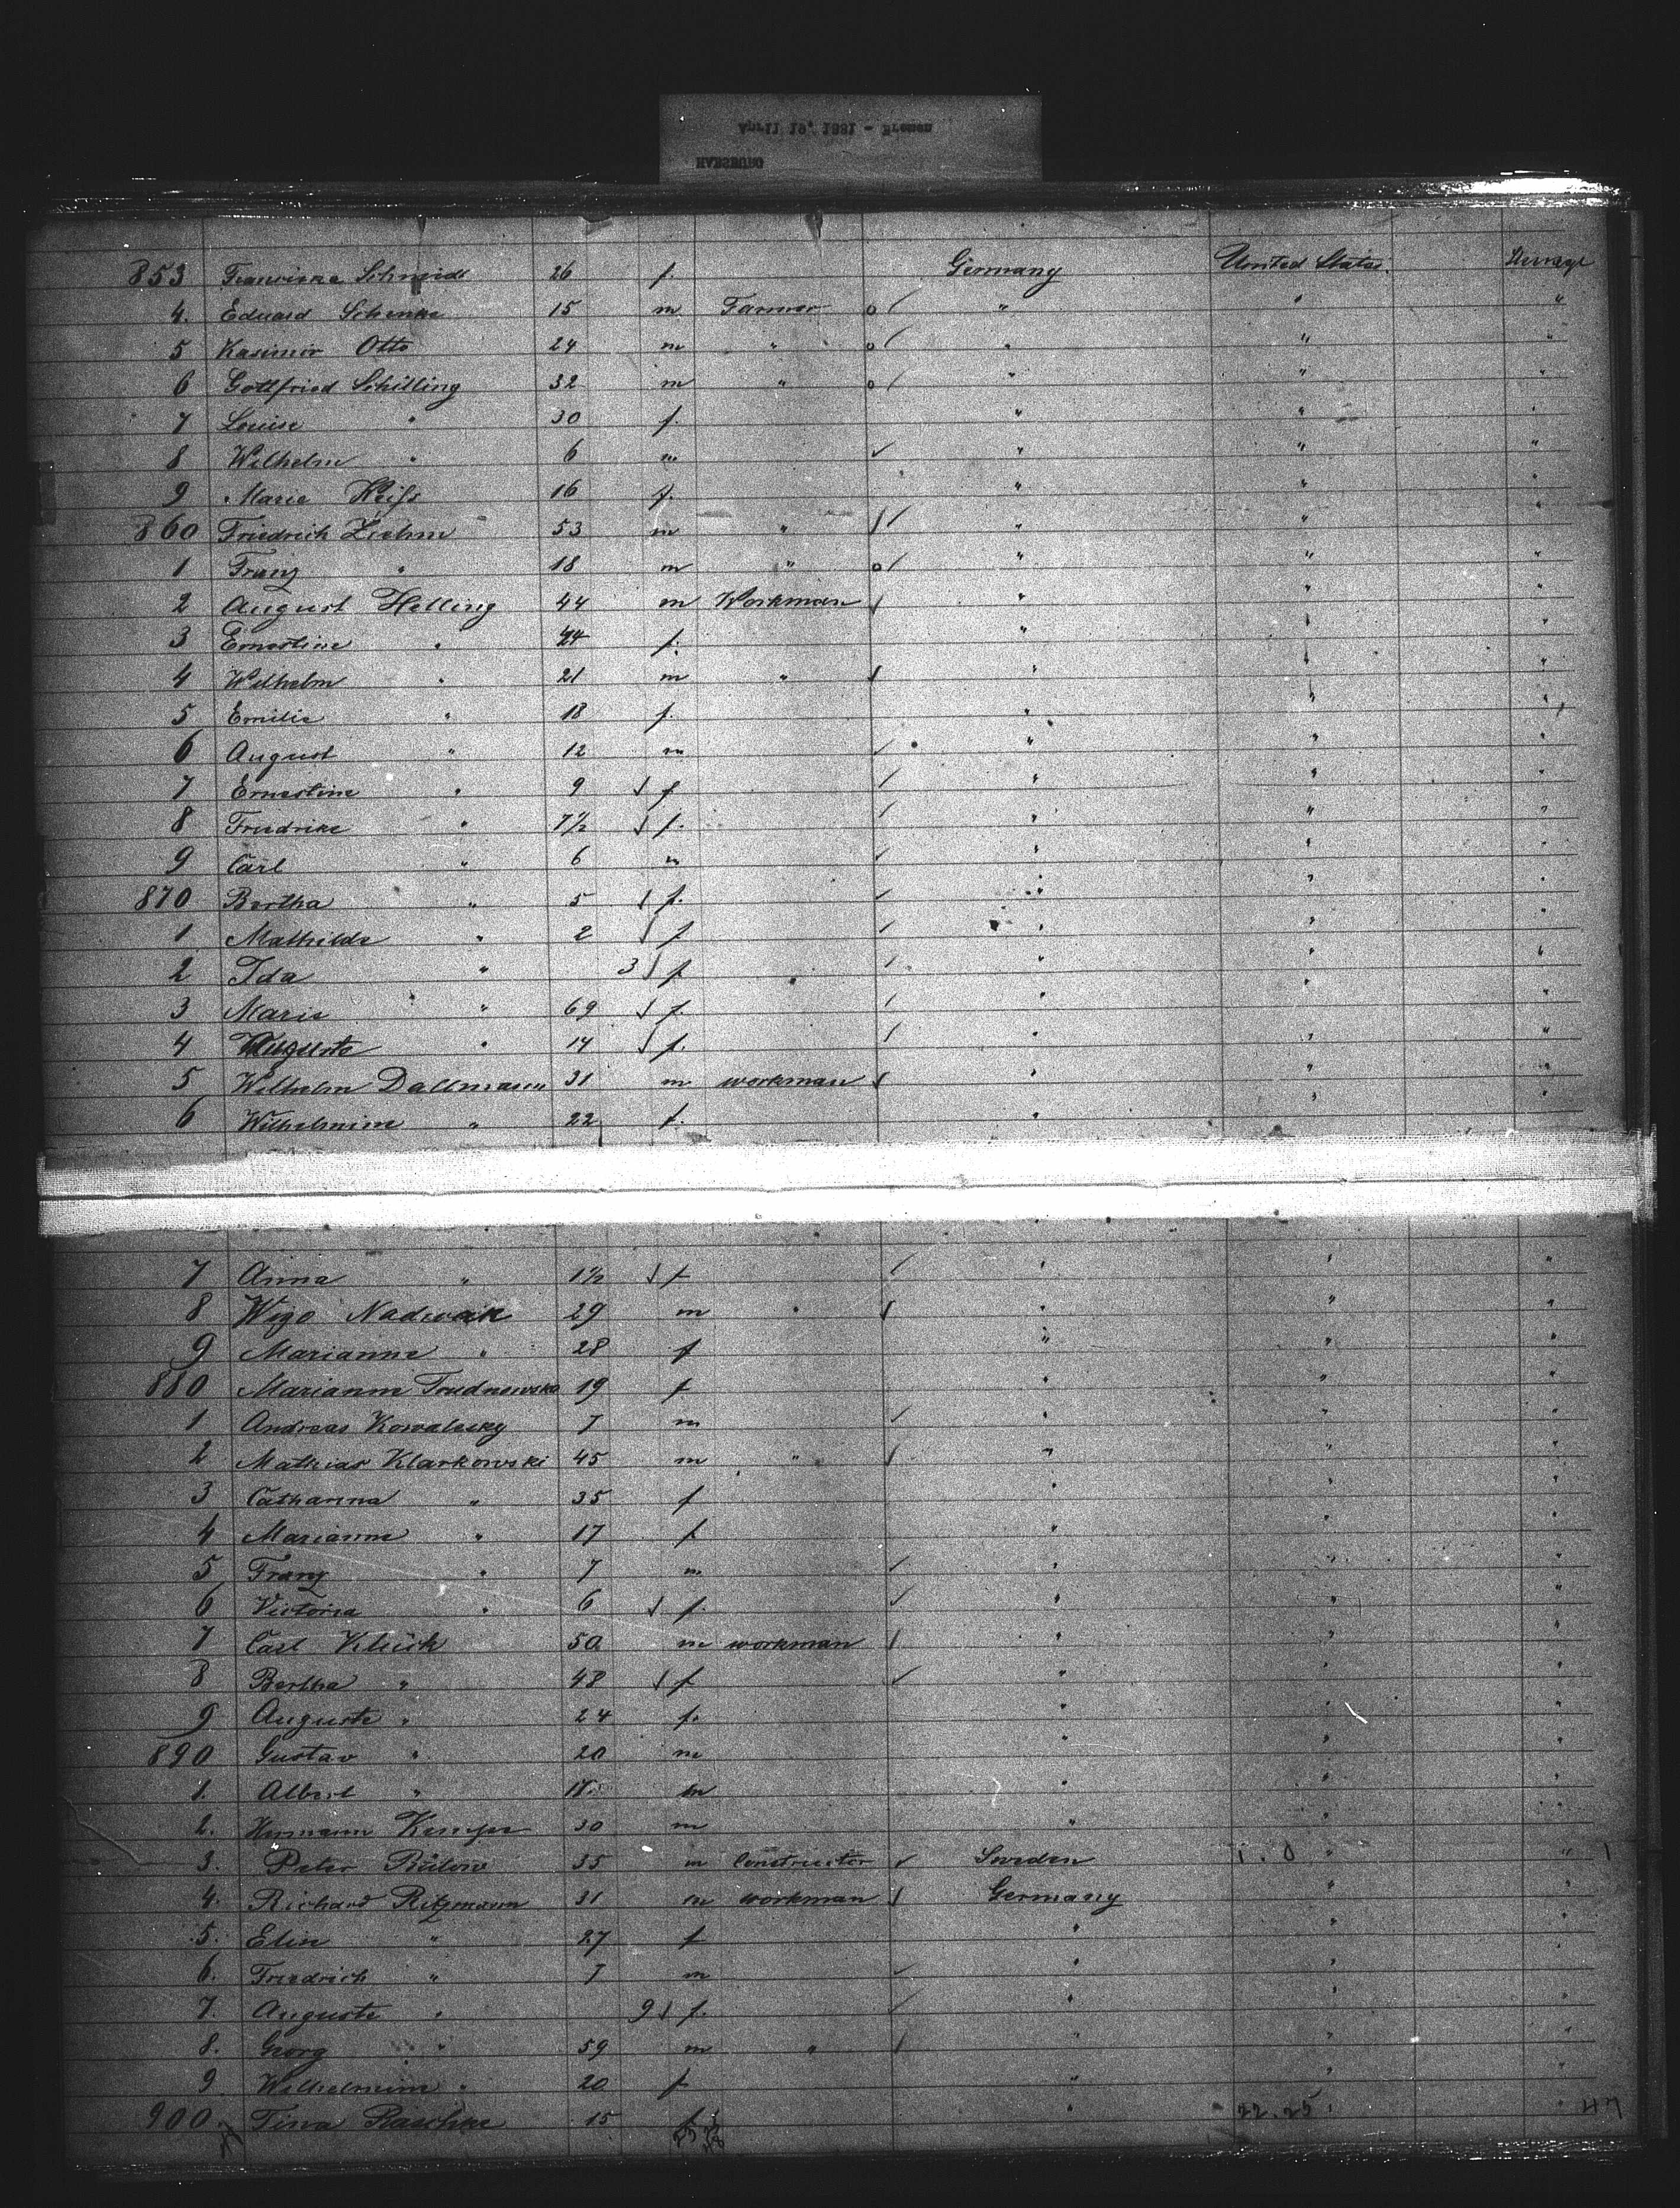 April 19, 1881 - Bremen
HABSBURG
853 Franziska Schmidt 26 f. Germany United States. Steerage
4. Eduard Schenke 15 m Farmer o / " " "
5 Kasimir Otto 24 m " o / " " "
6 Gottfried Schilling 32 m " o / " " "
7 Louise " 30 f. " " "
8 Wilhelm " 6 m ✓ " " "
9 Marie Reiss 16 f. " " "
860 Friedrich Ziehm 53 m " / / " " "
1 Franz " 18 m " o / " " "
2 August Helling 44 m Workman / " " "
3 Ernestine " 44 f. " " "
4 Wilhelm " 21 m " / " " "
5 Emilie " 18 f. " " "
6 August " 12 m ✓ " " "
7 Ernestine " 9 / f ✓ " " "
8 Friedrike " 7½ / f. ✓ " " "
9 Carl " 6 m ✓ " " "
870 Bertha " 5 / f. ✓ " " "
1 Mathilde " 2 / f ✓ " " "
2 Ida " 3 / f ✓ " " "
3 Marie " 69 / f. ✓ " " "
4 Auguste " 14 / f. ✓ " " "
5 Wilhelm Dallmann 31 m workman / " " "
6 Wilhelmine " 22 f. " " "
7 Anna " 1½ / f ✓ " " "
8 Wizo 29 m " / " " "
9 Marianne " 28 f " " "
880 Marianne 19 f " " "
1 Andreas Kowalsky 7 m ✓ " " "
2 Mathias Klarkowski 45 m " / " " "
3 Catharina " 35 f " " "
4 Marianne " 17 f " " "
5 Franz " 7 m ✓ " " "
6 Victoria " 6 / f. ✓ " " "
7 Carl Klück 50 m workman / " " "
8 Bertha " 48 / f ✓ " " "
9 Auguste " 24 f. " " "
890 Gustav " 20 m " " "
1. Albert " m " " "
2. Hermann 30 m " " "
3. Peter Bülow 35 m Constructer ✓ Sweden 1.0 " " 1
4. Richard Ritzmann 31 m workman / Germany " "
5. Elise " 27 f " " "
6. Friedrich " 7 m ✓ " " "
7. Auguste " 9 / f. ✓ " " "
8. Georg " 59 m " / " " "
9 Wilhelmine " 20 f " " "
900 Tina Raschke 15 f " 22.25 " " 47